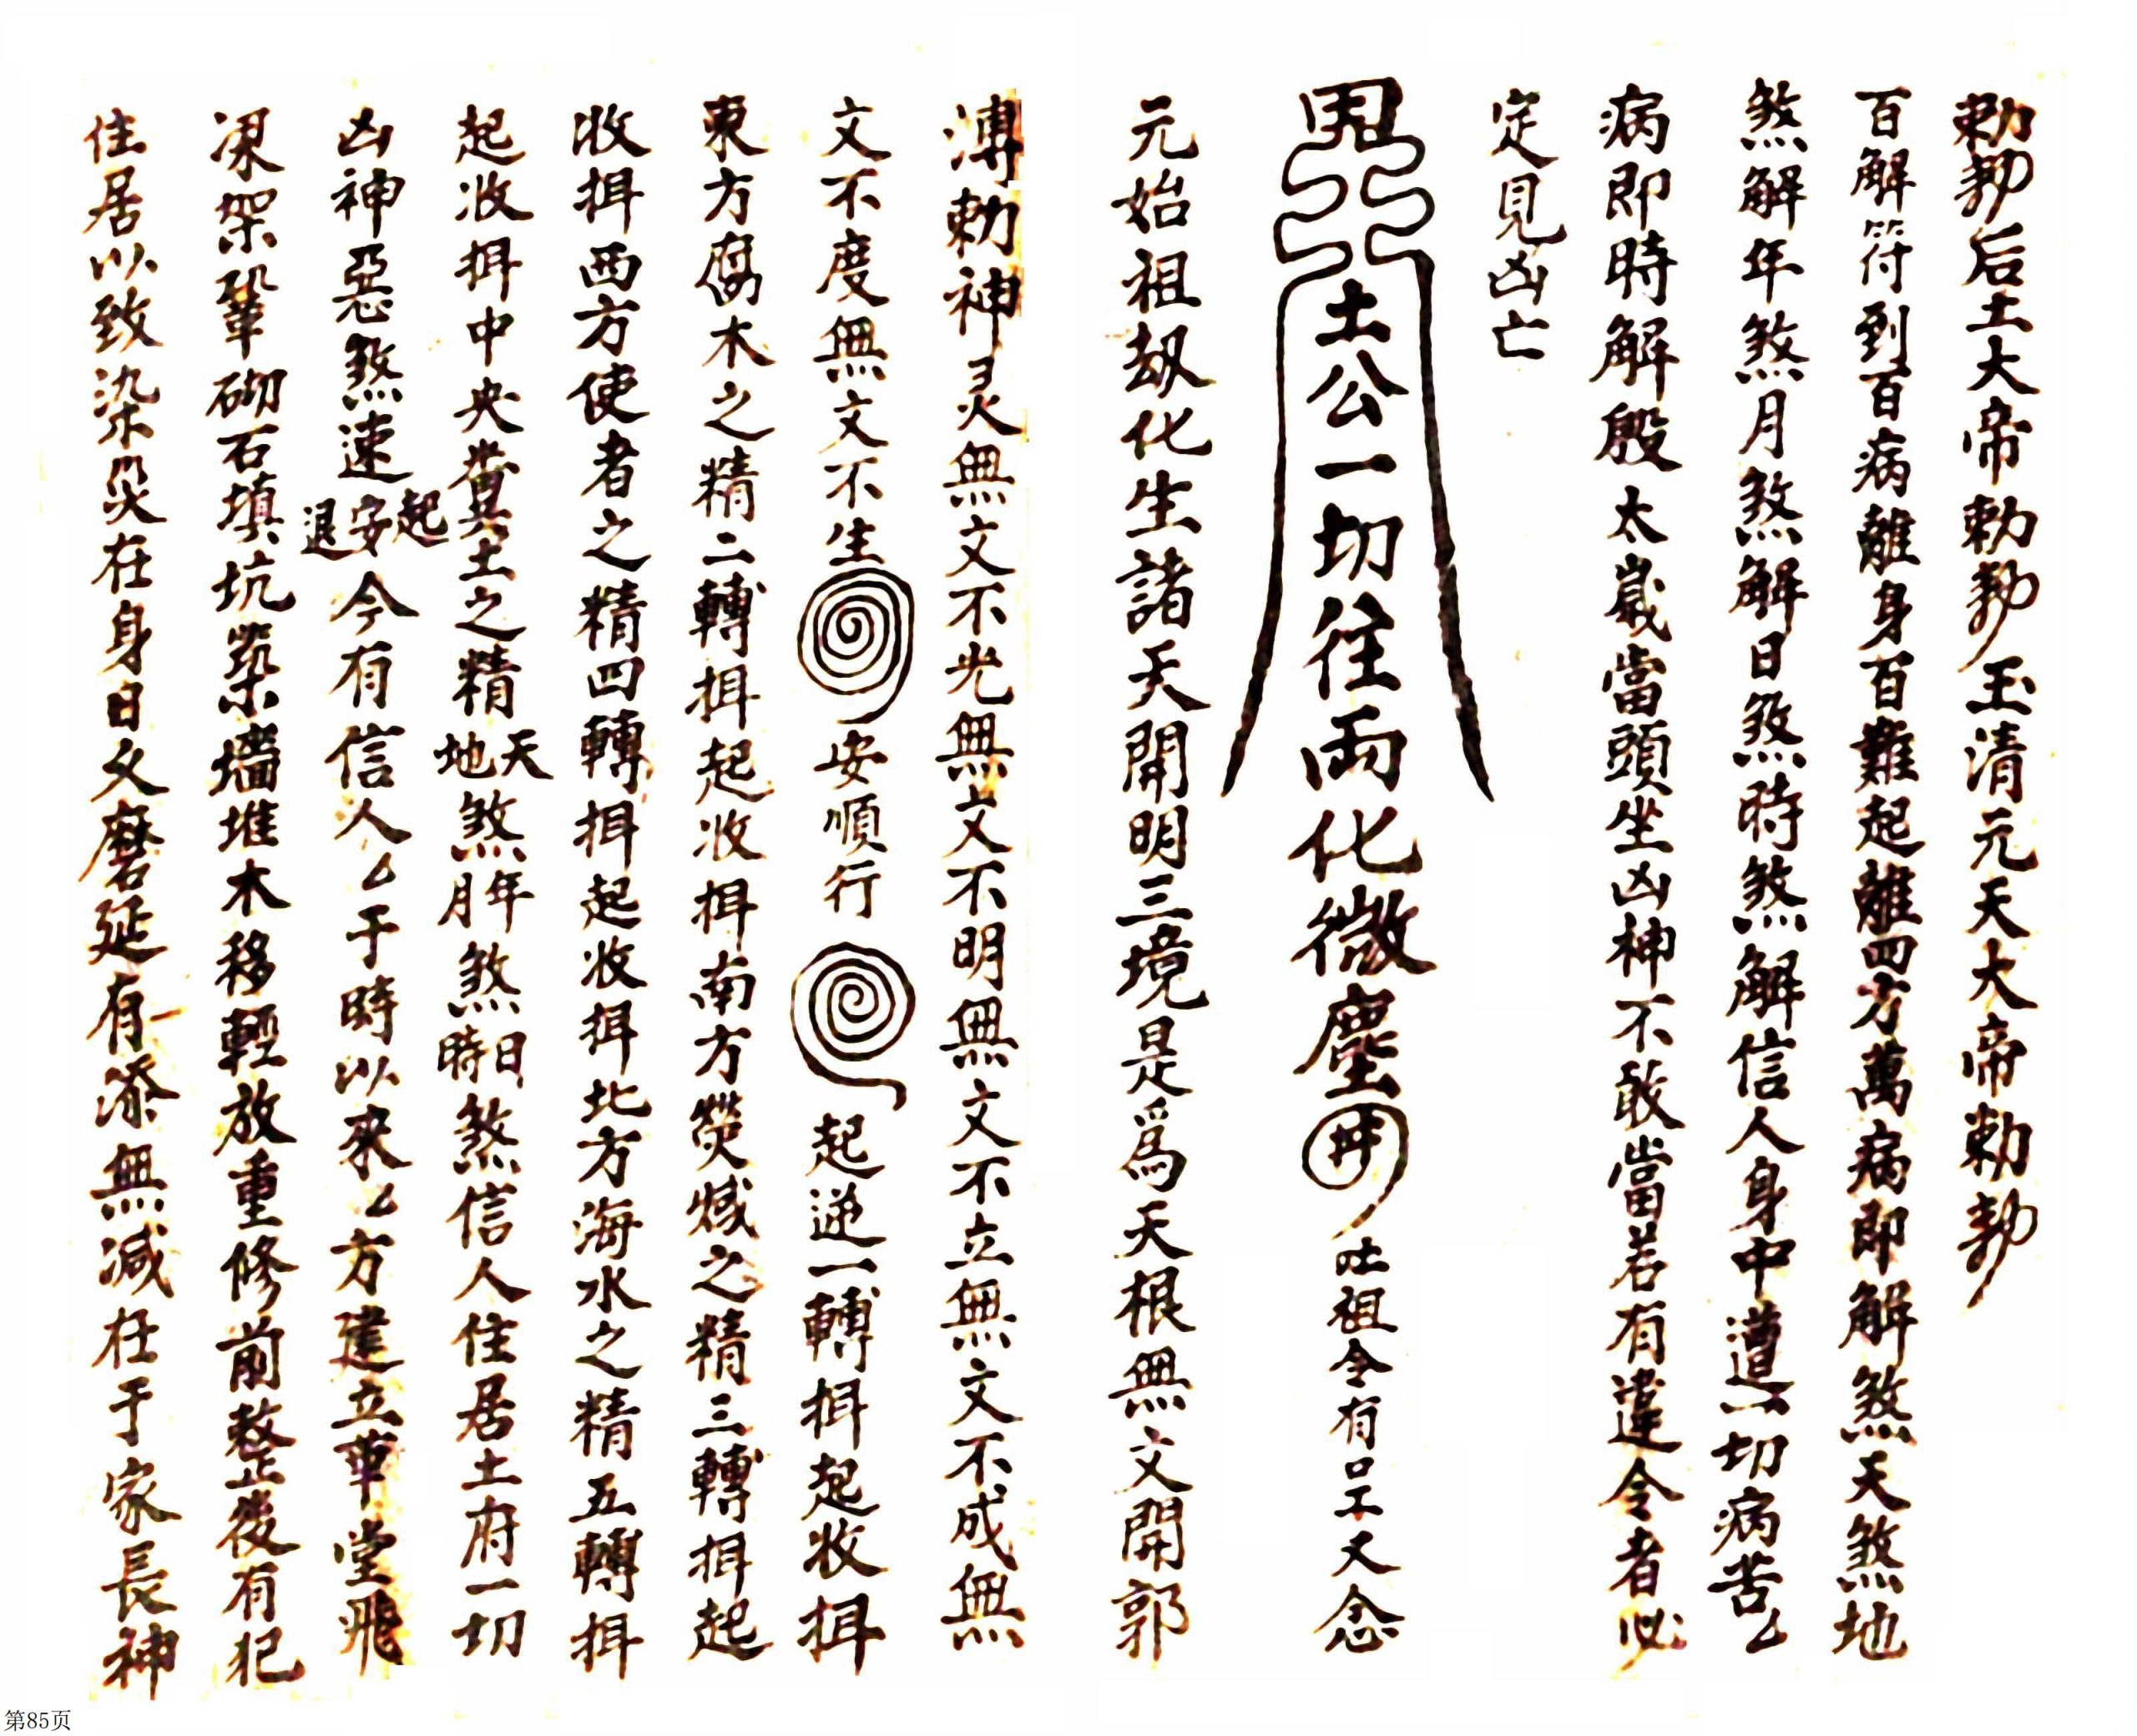 勅勅后土大帝勅勅玉清元天大帝勅勅
百解符到百病離身百難起離四方萬病即解煞天煞地
煞解年煞月煞解日煞時煞解信人身中遭一切病苦厶
病即時解殷太嵗當頭坐凶神不敢當若有違令者必
定見凶亡
土公一切往雨化微塵井 吐祖令有口工又念
元始祖劫化生諸天開明三境是爲天根無文開郭
溥勅神灵無文不光無文不明無文不立無文不成無
文不度無文不生 安順行 起逆一轉挕起收挕
東方腐木之精二轉挕起收挕南方熒惑之精三轉挕起
收挕西方使者之精四轉挕起收挕北方海水之精五轉挕
起收挕中央糞土之精天地煞年月煞日時煞信人住居土府一切
凶神惡煞速起安退今有信人厶于時以來厶方建立華堂飛
梁架鞏砌石填坑築墻堆木移輕放重修前整後有犯
住居以致染灾在身日久磨延有添無減在于家長神
第85页